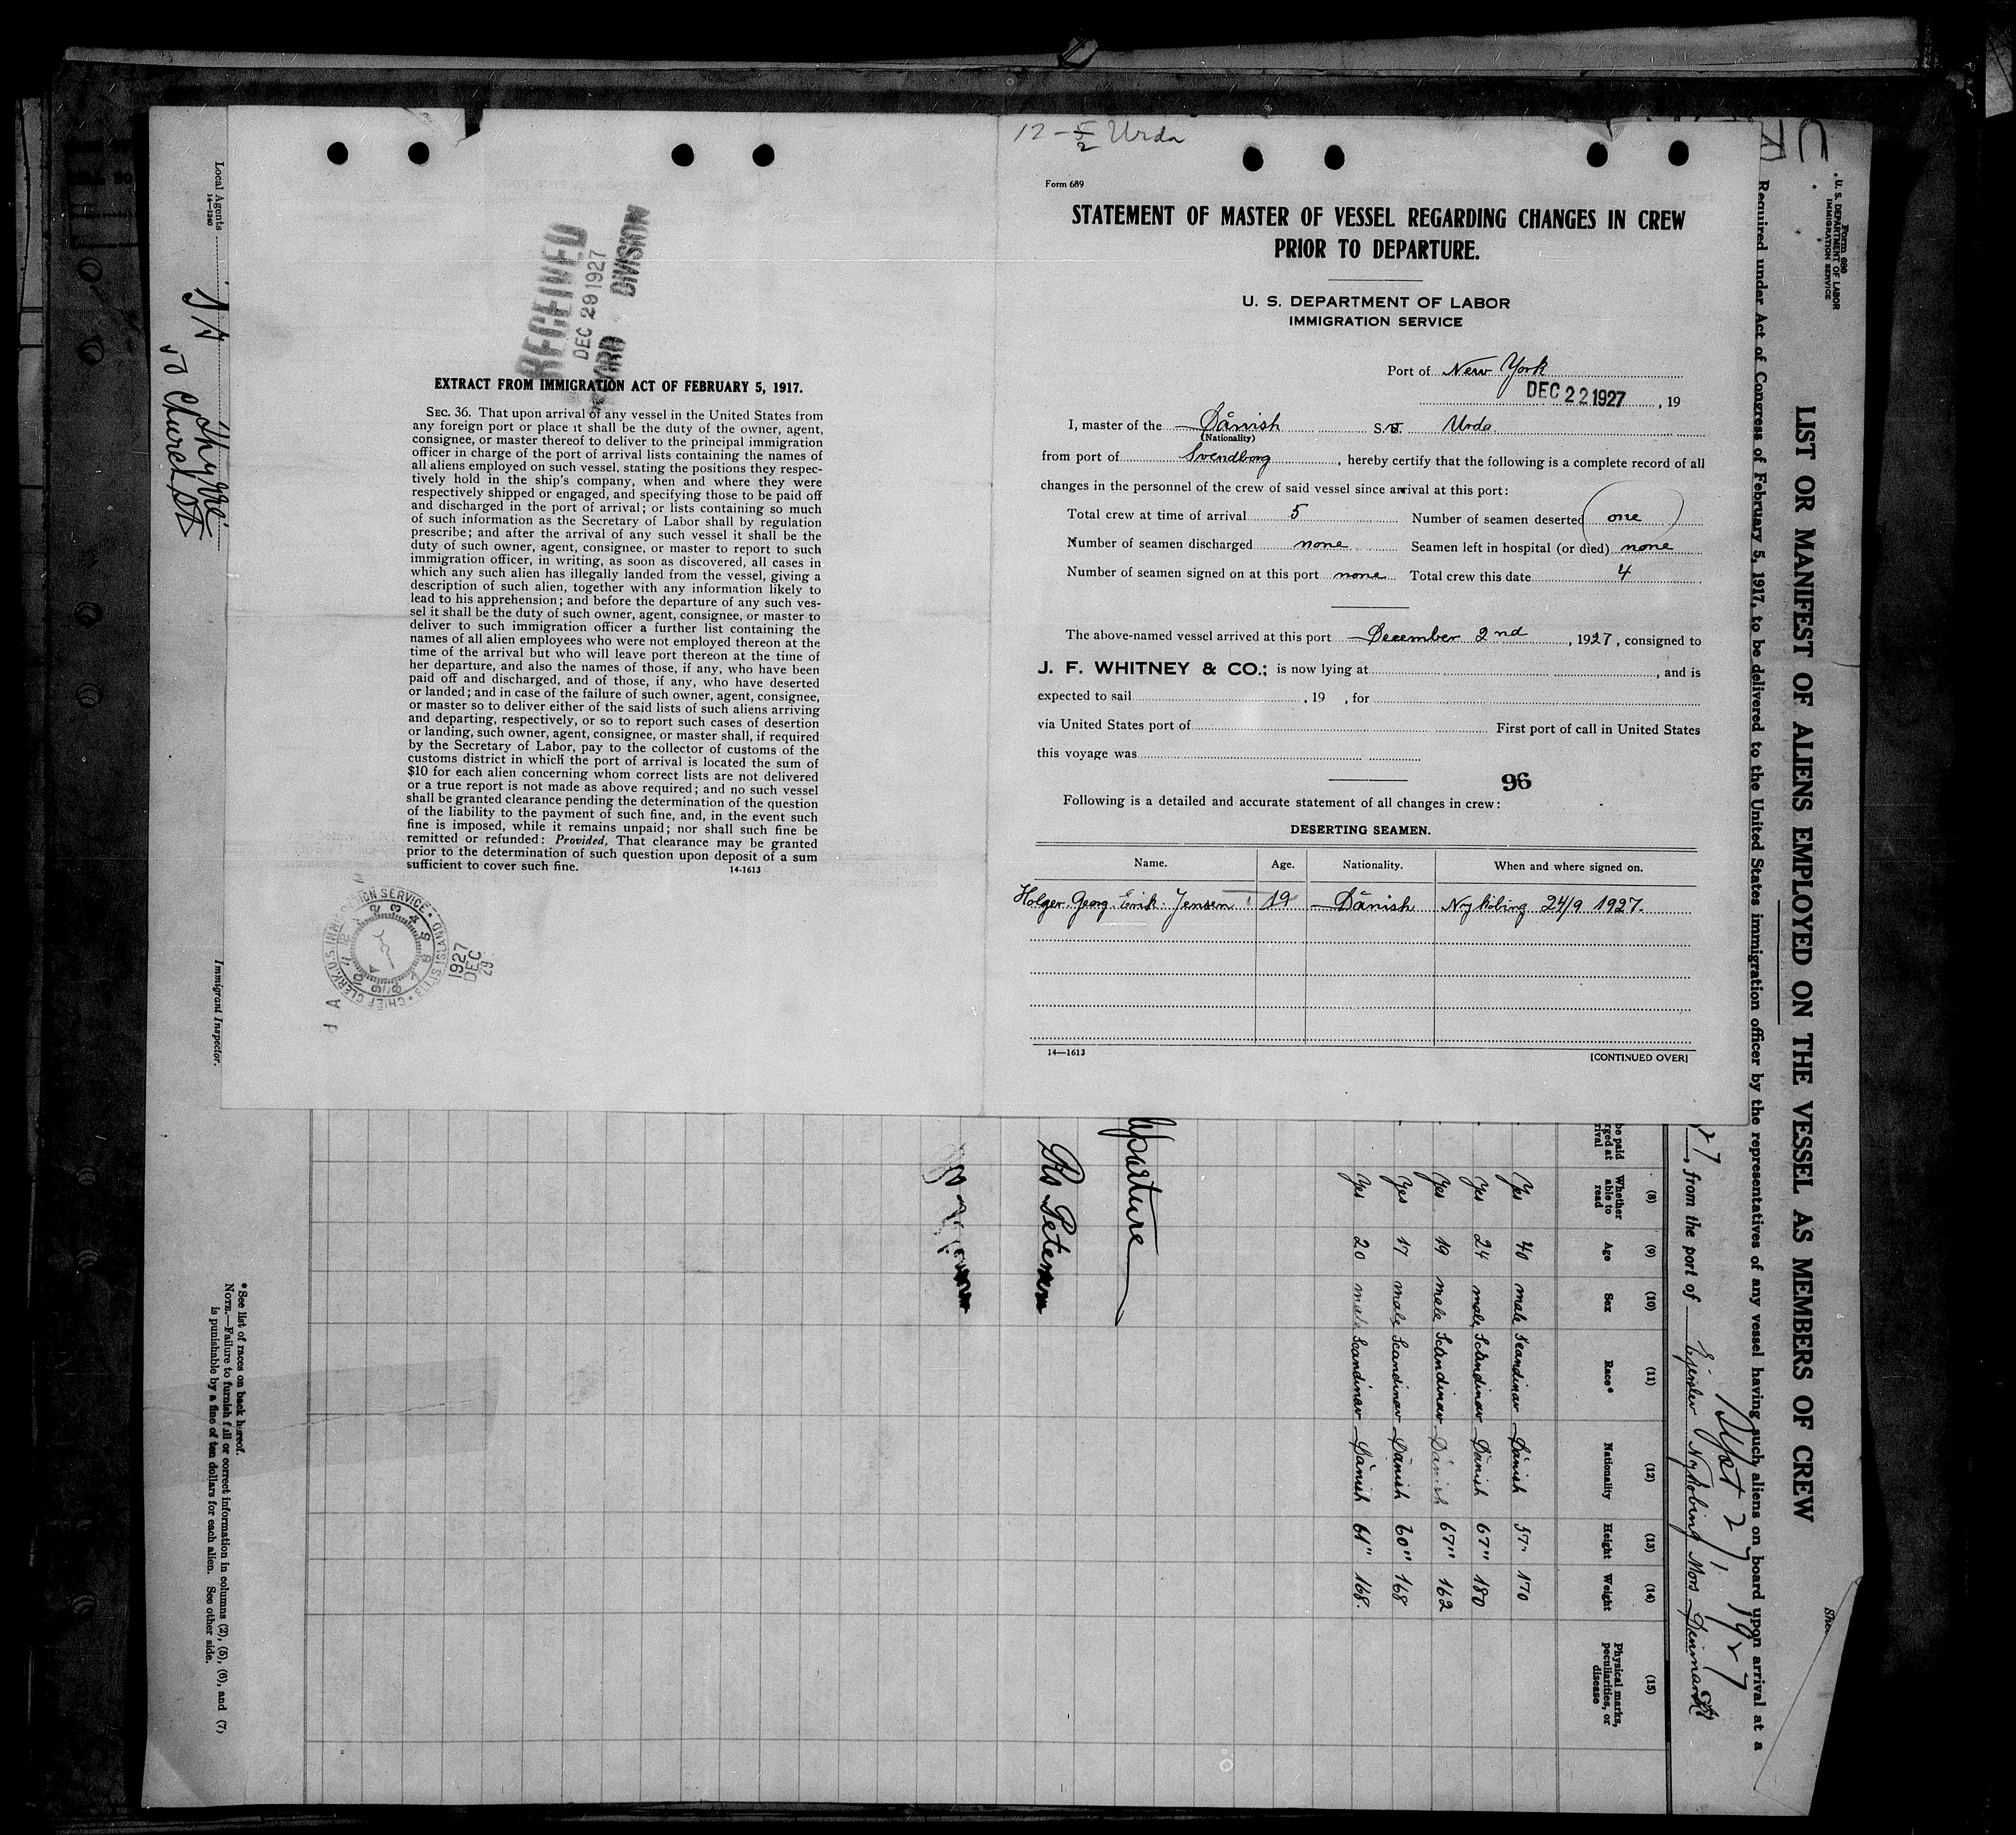 12-5/2 Urda
Form 689
STATEMENT OF MASTER OF VESSEL REGARDING CHANGES IN CREW
PRIOR TO DEPARTURE.
U. S. DEPARTMENT OF LABOR
IMMIGRATION SERVICE
Port of New York
DEC 22 1927, 19
I, master of the Dänish S.S. Urda
(Nationality)
from port of Svendborg, hereby certify that the following is a complete record of all
changes in the personnel of the crew of said vessel since arrival at this port:
Total crew at time of arrival 5 Number of seamen deserted one
Number of seamen discharged none Seamen left in hospital (or died) none
Number of seamen signed on at this port none Total crew this date 4
The above-named vessel arrived at this port December 2nd, 1927, consigned to
J. F. WHITNEY & CO.; is now lying at , and is
expected to sail , 19 , for
via United States port of First port of call in United States
this voyage was
96
Following is a detailed and accurate statement of all changes in crew:
DESERTING SEAMEN.
Name. Age. Nationality. When and where signed on.
Holger Georg Erik Jensen 19 Dänish Nykobing 24/9 1927.
14—1613 [CONTINUED OVER]
RECEIVED
DEC 29 1927
DIVISION
EXTRACT FROM IMMIGRATION ACT OF FEBRUARY 5, 1917.
SEC. 36. That upon arrival of any vessel in the United States from
any foreign port or place it shall be the duty of the owner, agent,
consignee, or master thereof to deliver to the principal immigration
officer in charge of the port of arrival lists containing the names of
all aliens employed on such vessel, stating the positions they respec-
tively hold in the ship's company, when and where they were
respectively shipped or engaged, and specifying those to be paid off
and discharged in the port of arrival; or lists containing so much
of such information as the Secretary of Labor shall by regulation
prescribe; and after the arrival of any such vessel it shall be the
duty of such owner, agent, consignee, or master to report to such
immigration officer, in writing, as soon as discovered, all cases in
which any such alien has illegally landed from the vessel, giving a
description of such alien, together with any information likely to
lead to his apprehension; and before the departure of any such ves-
sel it shall be the duty of such owner, agent, consignee, or master to
deliver to such immigration officer a further list containing the
names of all alien employees who were not employed thereon at the
time of the arrival but who will leave port thereon at the time of
her departure, and also the names of those, if any, who have been
paid off and discharged, and of those, if any, who have deserted
or landed; and in case of the failure of such owner, agent, consignee,
or master so to deliver either of the said lists of such aliens arriving
and departing, respectively, or so to report such cases of desertion
or landing, such owner, agent, consignee, or master shall, if required
by the Secretary of Labor, pay to the collector of customs of the
customs district in which the port of arrival is located the sum of
$10 for each alien concerning whom correct lists are not delivered
or a true report is not made as above required; and no such vessel
shall be granted clearance pending the determination of the question
of the liability to the payment of such fine, and, in the event such
fine is imposed, while it remains unpaid; nor shall such fine be
remitted or refunded: Provided, That clearance may be granted
prior to the determination of such question upon deposit of a sum
sufficient to cover such fine.
14-1613
CHIEF CLERK, U.S. IMMIGRATION SERVICE • ELLIS ISLAND
1927
DEC
29
Form 680
U. S. DEPARTMENT OF LABOR
IMMIGRATION SERVICE
LIST OR MANIFEST OF ALIENS EMPLOYED ON THE VESSEL AS MEMBERS OF CREW
Required under Act of Congress of February 5, 1917, to be delivered to the United States immigration officer by the representatives of any vessel having such aliens on board upon arrival at a
27, from the port of Nykobing Mors Denmark
(8) (9) (10) (11) (12) (13) (14) (15)
Whether able to read Age Sex Race* Nationality Height Weight Physical marks, peculiarities, or disease
Yes 40 male Scandinav Dänish 57" 170
Yes 24 male Scandinav Dänish 67" 180
Yes 19 male Scandinav Dänish 67" 162
Yes 17 male Scandinav Dänish 60" 168
Yes 20 male Scandinav Dänish 61" 168.
* See list of races on back hereof.
NOTE.—Failure to furnish full or correct information in columns (2), (5), (6), and (7)
is punishable by a fine of ten dollars for each alien. See other side.
Local Agents
14—1240
50 Church St
Immigrant Inspector.